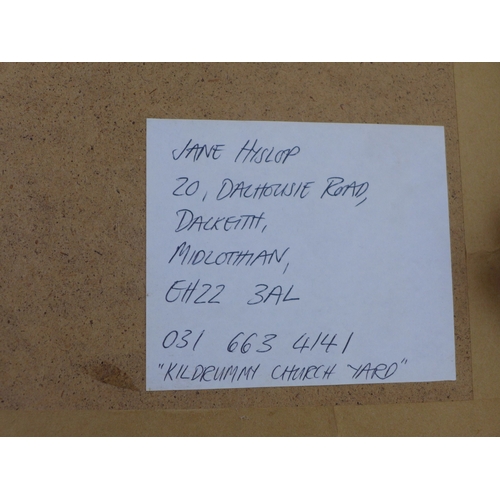 JANE HYSLOP
20, DALHOUSIE ROAD,
DALKEITH,
MIDLOTHIAN,
EH22 3AL
031 663 4141
"KILDRUMMY CHURCH YARD"